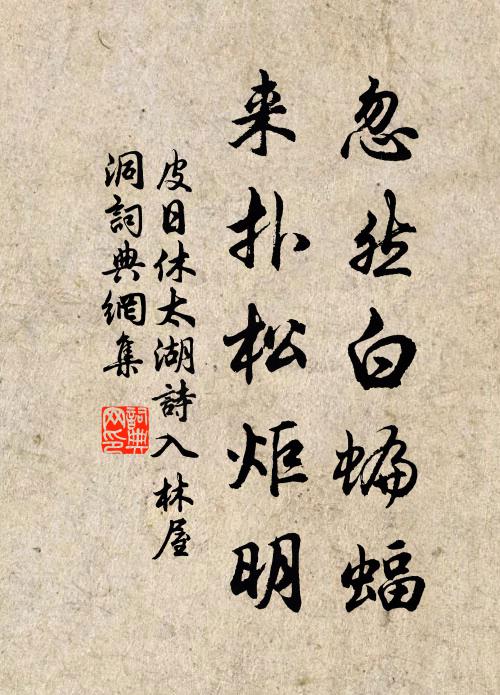 忽然白蝙蝠
来扑松炬明
皮日休太湖詩入林屋
洞詞典網集
詞典
网印